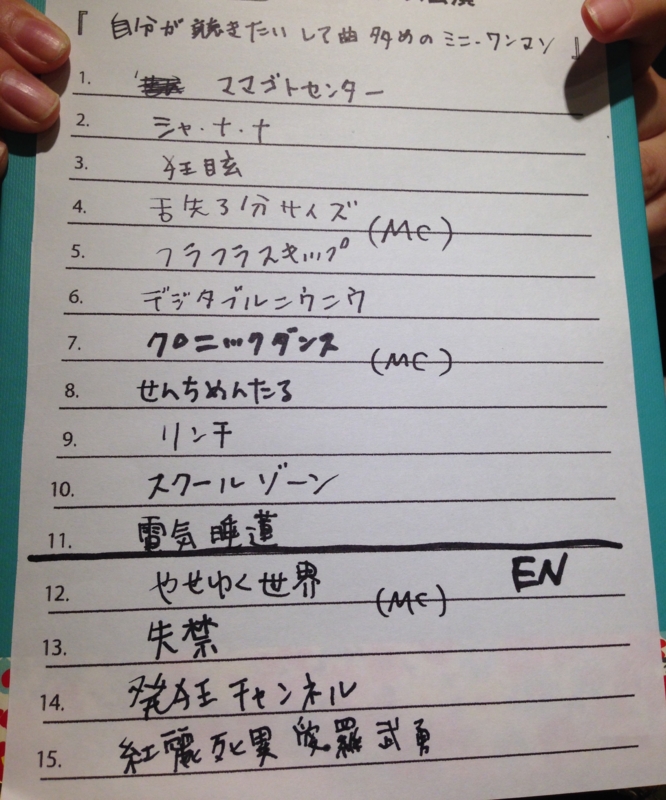 『 自分が 聴きたい して曲 多めの ミニ・ワンマン 』
1. ママゴトセンター
2. シャ・ナ・ナ
3. 狂眩
4. 舌先3分サイズ
(MC)
5. フラフラスキップ
6. デジタブルニウニウ
7. クロニックダンス
(MC)
8. せんちめんたる
9. リンチ
10. スクールゾーン
11. 電気睡蓮
EN
12. やせゆく世界
(MC)
13. 失禁
14. 発狂チャンネル
15. 紅麗死異愛羅武勇